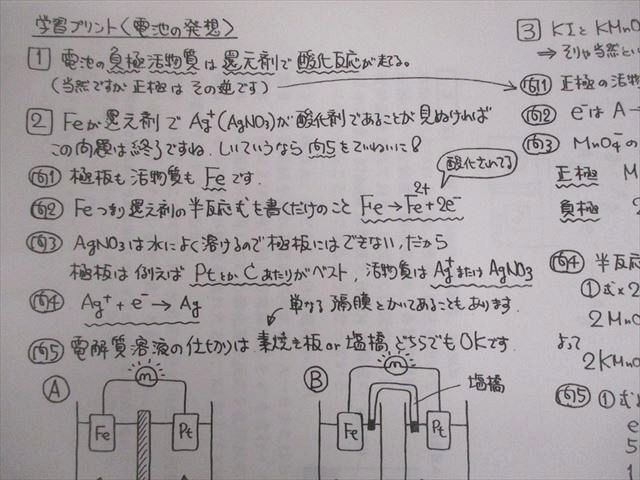 学習プリント〈電池の発想〉
1 電池の負極活物質は還元剤で酸化反応が起る。
(当然ですが正極はその逆です)
2 Feが還元剤でAg⁺(AgNO₃)が酸化剤であることが見ぬければ
この問題は終了ですね。しいていうなら問5をていねいに8
問1 極板も活物質もFeです.
酸化されてる
問2 Feつまり還元剤の半反応式を書くだけのこと Fe→Fe²⁺+2e⁻
問3 AgNO₃は水によく溶けるので極板にはできない,だから
極板は例えばPtとかCあたりがベスト,活物質はAg⁺またはAgNO₃
問4 Ag⁺+e⁻→Ag
単なる隔膜とかいてあることもあります.
問5 電解質溶液の仕切りは素焼き板or塩橋,どちらでもOKです.
A
m
Fe
Pt
B
m
塩橋
Fe
Pt
3 KIとKMnO
⇒そりゃ当然とい
問1 正極の活物
問2 e⁻はA→
問3 MnO₄⁻の
正極 M
負極
問4 半反応
①式×2
2MnO
よって
2KMnO
問5 ①式
e
5
1